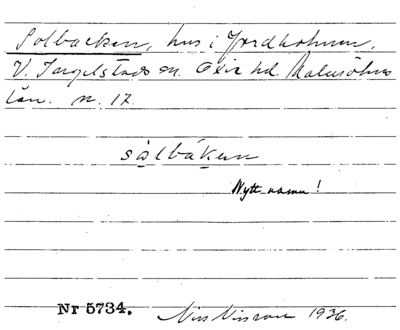 Solbacken, hus i Jordholmen,
V. Ingelstads sn. Oxie hd. Malmöhus
län. n. 17.
sòlbákan
Nytt namn!
Nr 5734. Nils Nilsson 1936.